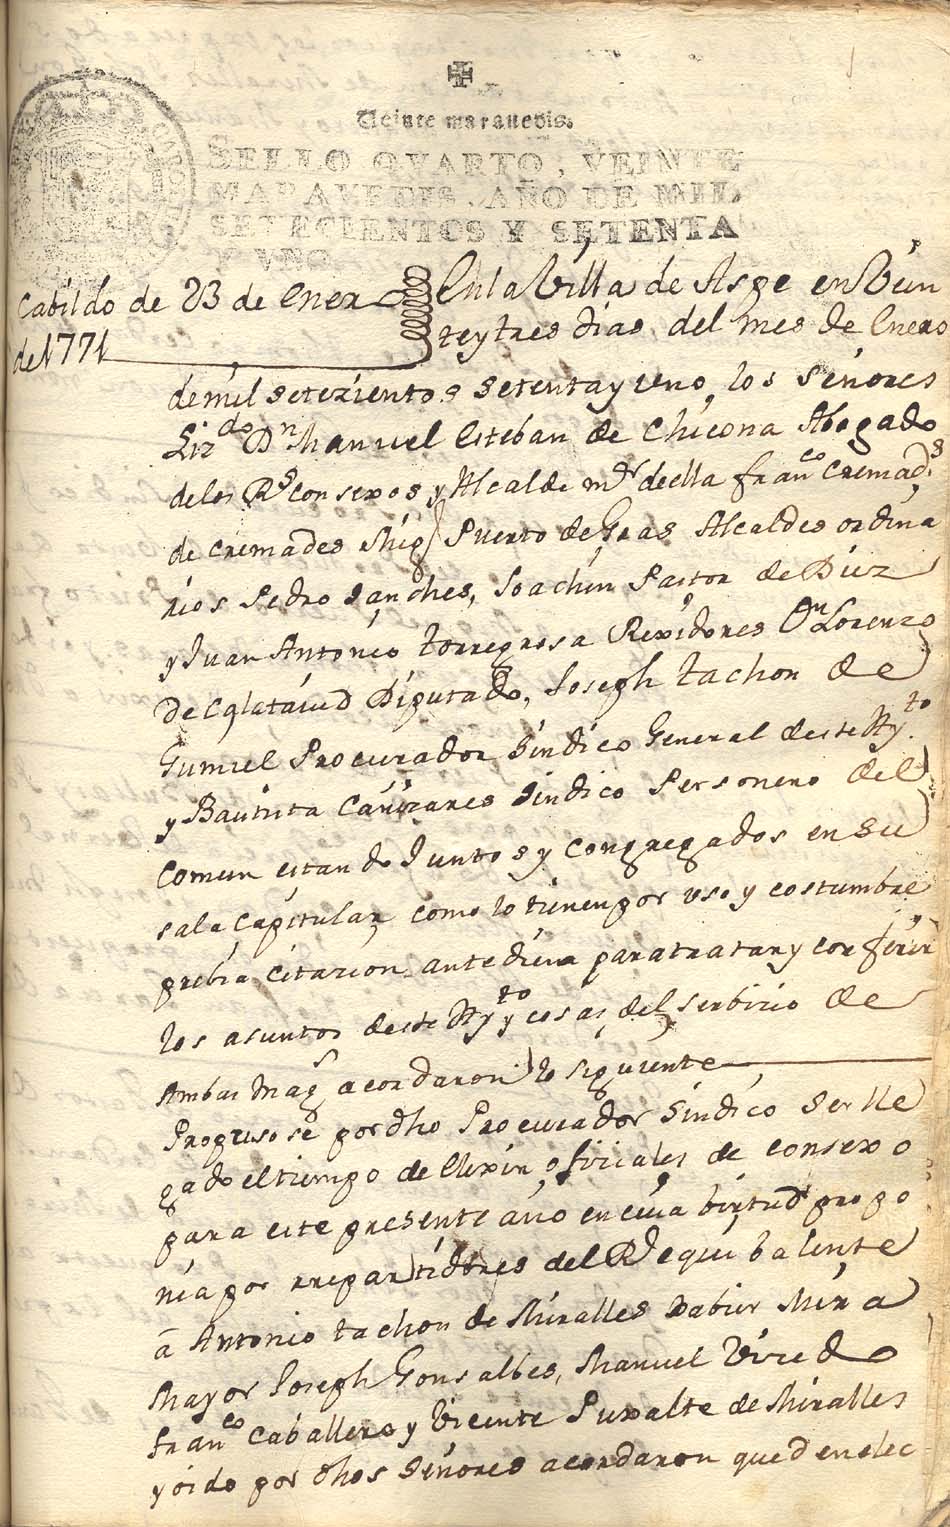 Veinte maravedis.
SELLO QVARTO, VEINTE
MARAVEDIS, AÑO DE MIL
SETECIENTOS Y SETENTA
Y VNO.
Cabildo de 23 de Enero
de 1771
En la Villa de Aspe en Vein
te y tres dias del mes de Enero
de mil setezientos setenta y uno, los Señores
Lizdo Dn Manuel Esteban de Chicona Abogado
de los Rs consexos y Alcalde mr de ella franco Cremads
de Cremades Migl Puerto de Gras Alcaldes ordina
rios Pedro Sanches, Joachin Pastor de Diez
y Juan Antonio Torregrosa Rexidores Dn Lorenzo
de Calataiud Diputado, Joseph Tachon de
Gumiel Procurador Sindico General de este Aytto
y Bautista Cañizares Sindico Personero del
Comun estando Juntos y congregados en su
sala capitular como lo tienen por uso y costumbre
prebia citazion antediem para tratar y conferir
los asuntos de este Aytto y cosas del serbizio de
Ambas Mags acordaron lo siguiente
Propuso se por dho Procurador Sindico ser lle
gado el tiempo de elexir ofiziales de consexo
para este presente año en cuia birtud propo
nia por rrepartidores del Rl equibalente
â Antonio Tachon de Miralles Xabier Mira
Mayor Joseph Gonsalbes, Manuel Vizedo
franco Caballero y Vicente Puxalte de Miralles
y oido por dhos Señores acordaron qued en elec